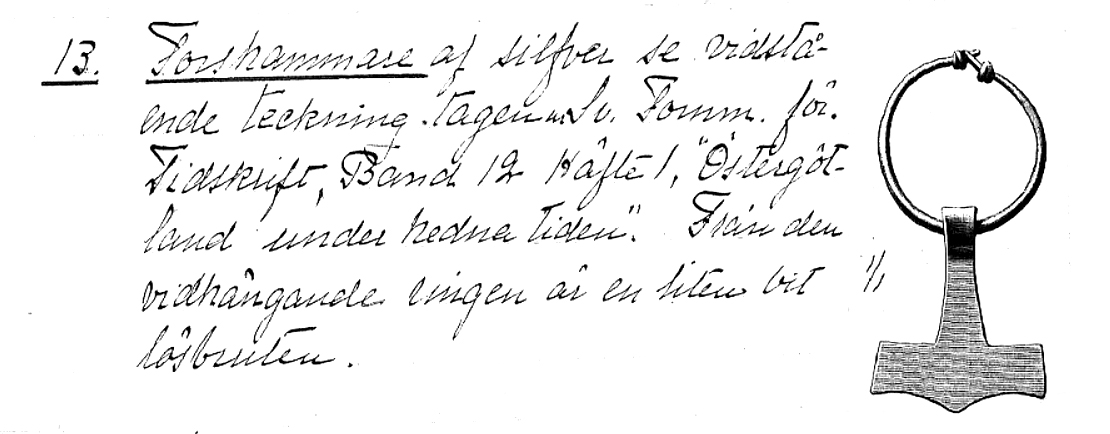 13. Torshammare af silfver se vidstå-
ende teckning tagen ur Sv. Fornm. för.
Tidskrift, Band 12 Häfte 1, "Östergöt-
land under hedna tiden". Från den
vidhängande ringen är en liten bit 1/1
lösbruten.